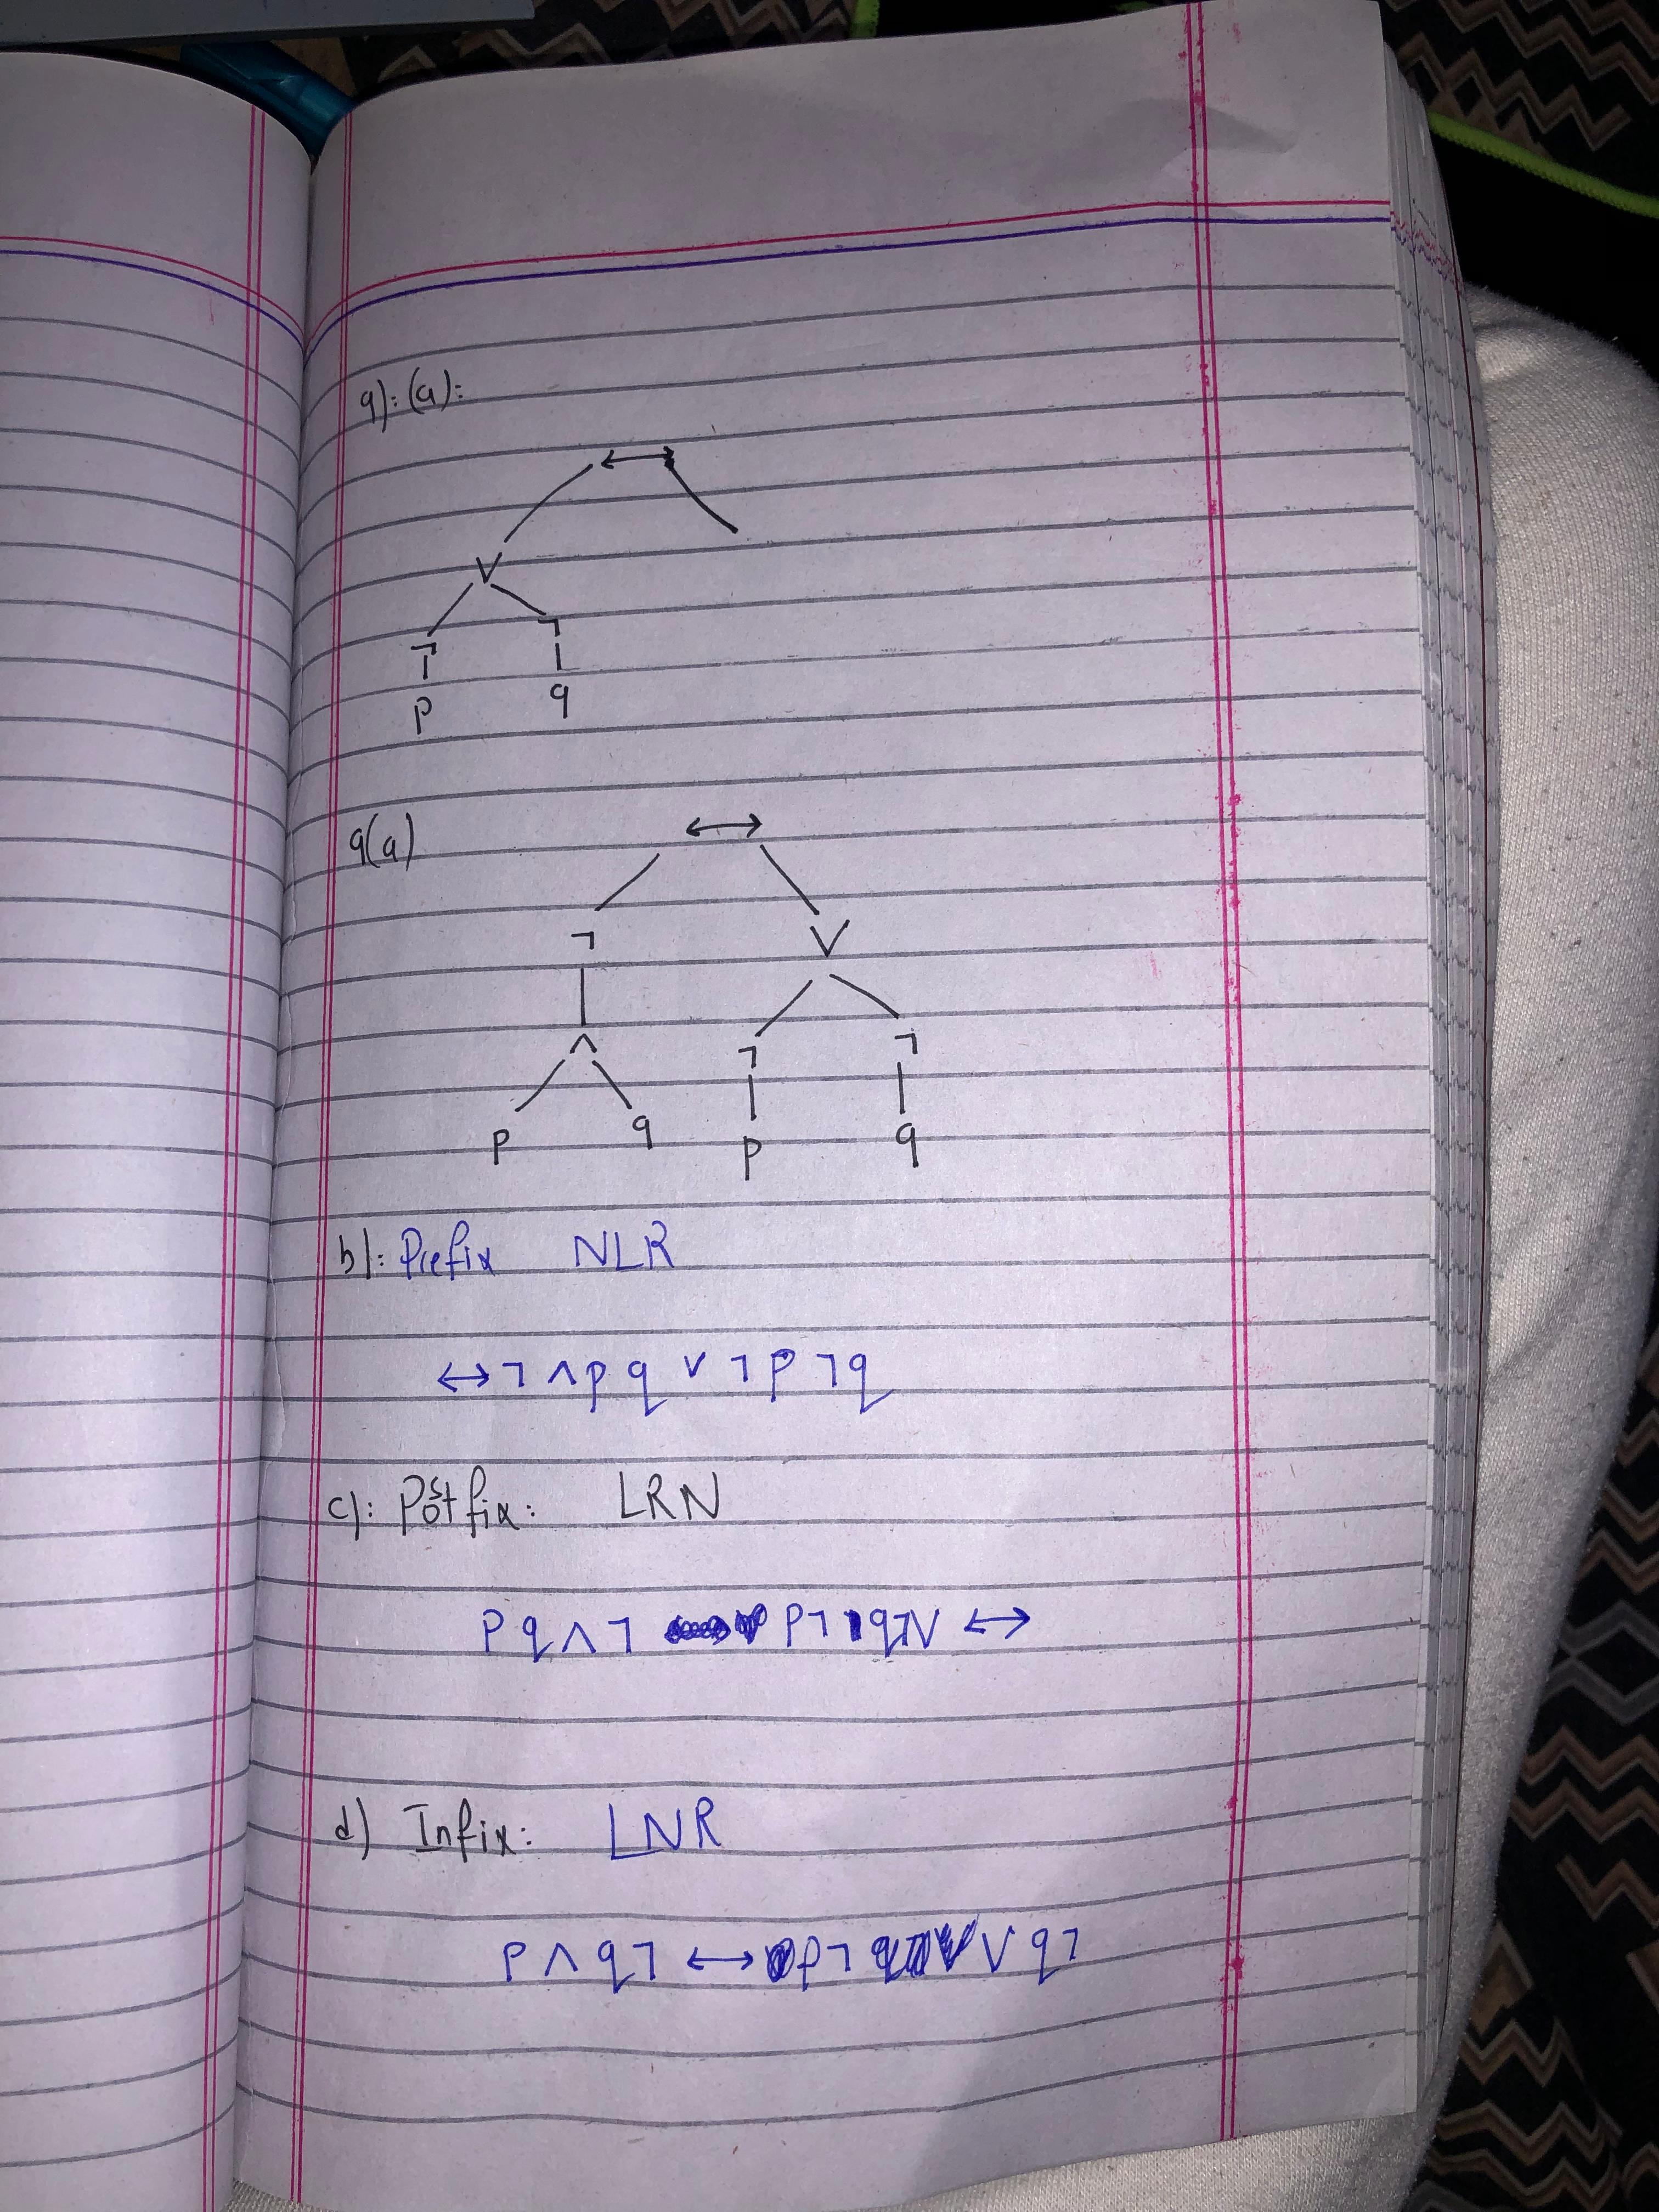 9):(a):
↔
V
¬ ¬
p q
9(a)
↔
¬ V
^ ¬ ¬
p q p q
b): Prefix NLR
↔ ¬ ^ p q v ¬ p ¬ q
c): Postfix: LRN
p q ^ ¬ p ¬ q ¬ V ↔
d) Infix: LNR
p ^ q ¬ ↔ p ¬ V q ¬